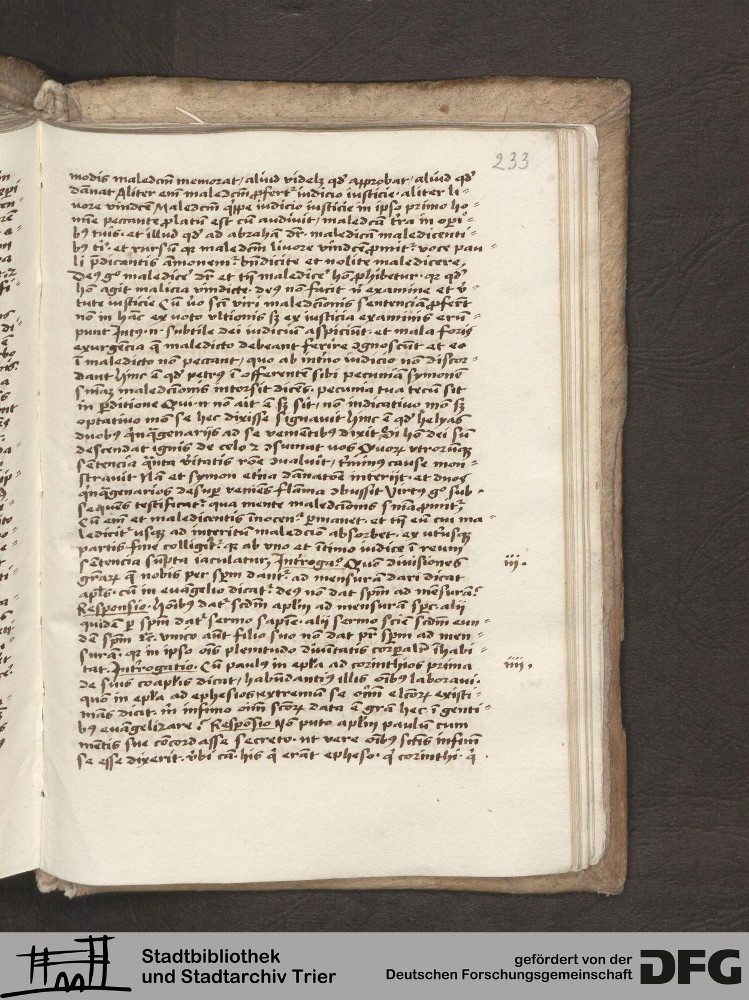 233
modis maledcm̄ memorat / aliud videlȝ qd̓ approbat / aliud qd̓
dānat Aliter em̄ maledcm̄ ꝓfert᷑ iudicio iusticie · aliter li⸗
uore vindcē Maledcm̄ qͥppe iudicio iusticie in ipso primo ho⸗
mīe peccante ꝓlatū est cū audiuit / maledcā tr̄a in oꝑi⸗
bꝰ tuis · et illud qd̓ ad abrahā dr̄ · maledicā maledicenti⸗
bꝰ ti · et rursū qꝛ maledcm̄ liuore vindcē ꝓmit᷑ · voce pau⸗
li p̄dicantis āmonem᷑ bn̄dicite et nolite maledicere ,
Deꝰ gͦ maledice᷑ dr̄ et tn̄ maledice᷑ hō ꝓhibetur · qꝛ qd̓
hō agit malicia vindicte · deꝰ nō facit nͥ examine et v̓⸗
tute iusticie Cū v̓o sct̄i viri maledcionis sentenciā ꝓfert̄
nō in hāc ex uoto vltionis sȝ ex iusticia examinis erū⸗
punt Intꝰ · n · subtile dei iudiciū aspiciūt · et mala foris
exurgēcia qͣ maledicto debeant ferire ꝯgnoscūt et eo
ī maledicto nō peccant / quo ab int̓no iudicio nō discor⸗
dant hinc ē qd̓ petrꝰ ī offerentē sibi pecuniā symonē
snīaꝫ maledcionis intorsit dicēs · pecunia tua tecū sit
in ꝑditione Qui · n · nō ait ē sȝ sit / nō indicatiuo mō sȝ
optatiuo mō se hec dixisse signauit hinc ē qd̓ helyas
duobꝰ qͥnqͣgenarijs ad se venientibꝰ dixit , Si hō dei sū
descendat ignis de celo ⁊ ꝯsumat uos Quorꝝ vtrorūqꝫ
sētencia qͣnta v̓itatis rōe ꝯualuit / t̓minꝰ cause mon⸗
strauit Nā et symon etna dānatōe interijt · et duos
qͥnqͣgenarios desuꝑ veniēs flāma ꝯbussit Virtꝰ gͦ sub⸗
sequēs testificat᷑ qua mente maledcionis snīa ꝓmit᷑ ,
Cū em̄ et maledicentis īnocen᷑ ꝑmanet · et tn̄ eū cui ma⸗
ledicit᷑ usqꝫ ad interitū maledcio absorbet · ex ut̓usqꝫ
partis fine colligit᷑ · qꝛ ab vno et īt̓imo iudice ī reum
sētencia sūpta iaculatur , Int̓roga᷑ Quō diuisiones
iii .
grāꝝ q̄ nobis per spm̄ dant᷑ · ad mensurā dari dicat
apl̓s · cū in euāgelio dicat᷑ · deꝰ nō dat spm̄ ad mēsurā ?
Responsio · hoībꝰ dat᷑ scdm̄ apl̓m ad mensurā spc̄ · alij
quidē ꝑ spm̄ dat᷑ sermo sapīe · alij sermo scīe scdm̄ eun⸗
dē spm̄ ⁊c · vnico aūt filio suo nō dat pr̄ spm̄ ad men⸗
surā · qꝛ in ipso oīs plenitudo diuītatis corꝑalit̓ īhabi⸗
tat · Int̓rogatio · Cū paulꝰ in epl̓a ad corinthios prima
iiii .
de suis coapl̓is dicat / habūdantiꝰ illis oībꝰ laboraui ·
quō in epl̓a ad ephesios extremū se oīm elcōꝝ existi⸗
mās dicit · m̄ infimo oīm scōꝝ data ē grā hec · ī genti⸗
bꝰ euāgelizare ? Responsio Nō puto apl̓m paulū cum
mentis sue cōcordasse secreto · ut vere oībꝰ sctīs infimū
se esse dixerit · v̓bi cā · his qͥ erāt epheso · qͥ corinthi · qͥ
Stadtbibliothek
und Stadtarchiv Trier
gefördert von der
Deutschen Forschungsgemeinschaft
DFG